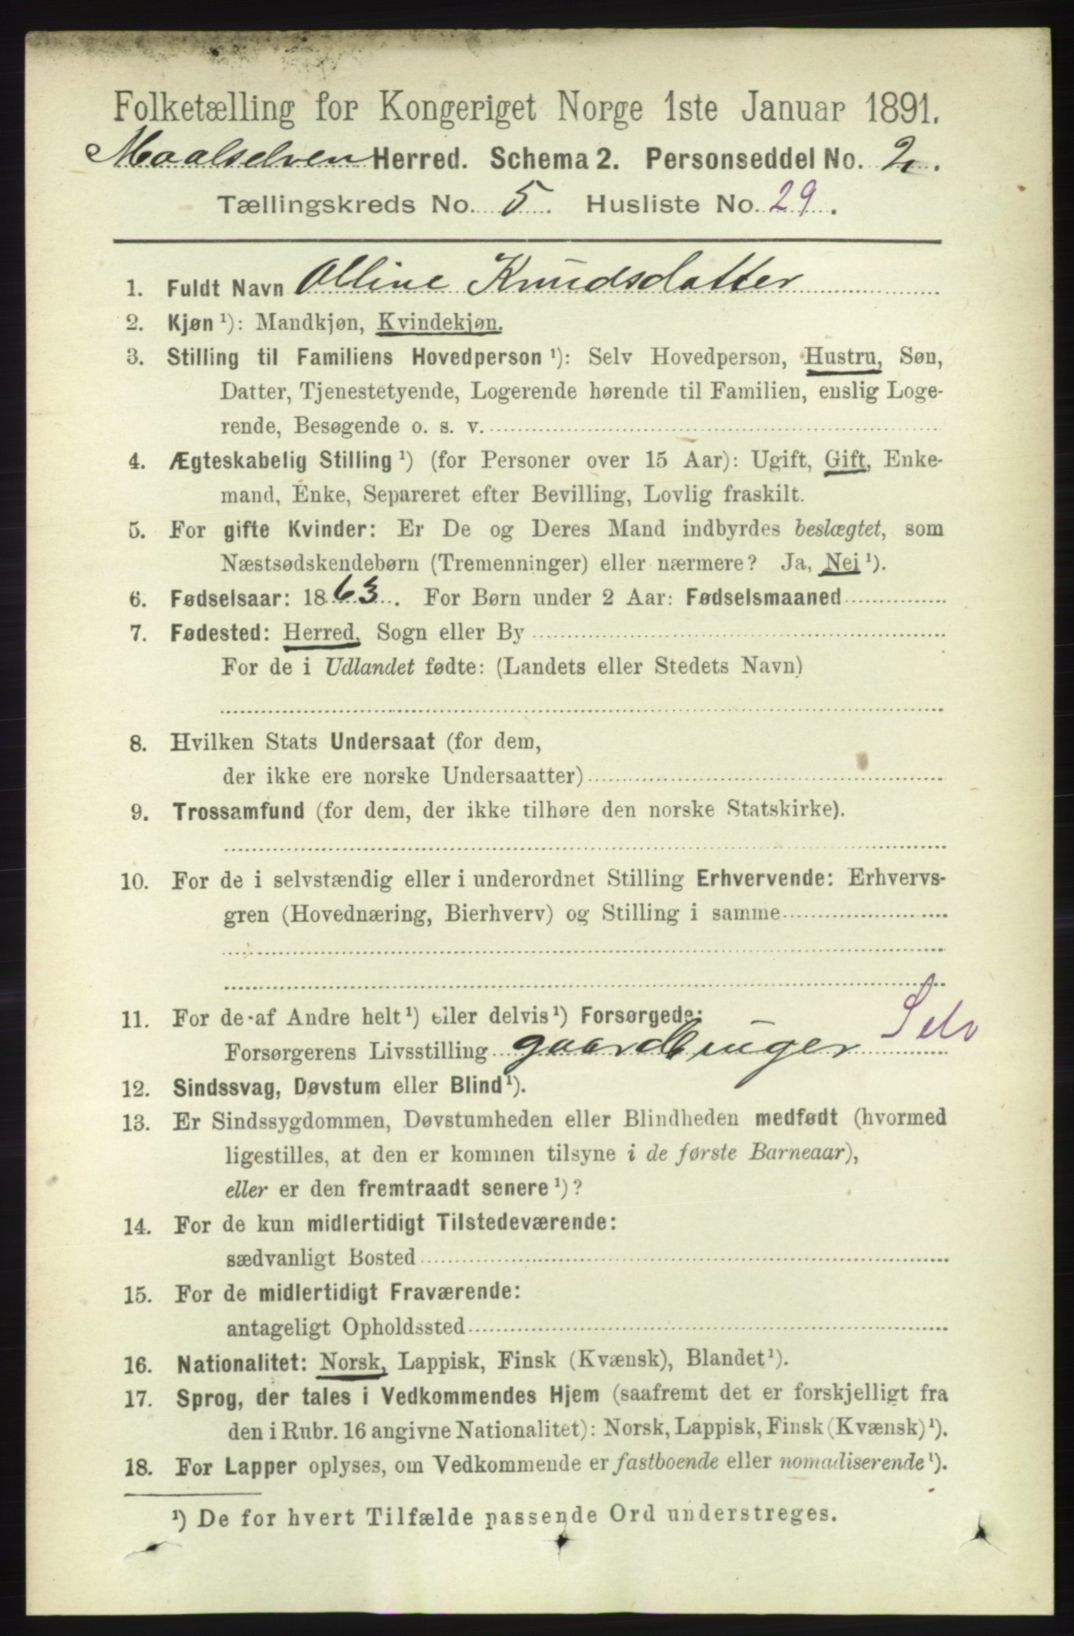 Folketælling for Kongeriget Norge 1ste Januar 1891.
Maalselven Herred. Schema 2. Personseddel No. 2.
Tællingskreds No. 5. Husliste No. 29.
1. Fuldt Navn Olline Knudsdatter
2. Kjøn ¹): Mandkjøn, Kvindekjøn.
3. Stilling til Familiens Hovedperson ¹): Selv Hovedperson, Hustru, Søn,
Datter, Tjenestetyende, Logerende hørende til Familien, enslig Loge-
rende, Besøgende o. s. v.
4. Ægteskabelig Stilling ¹) (for Personer over 15 Aar): Ugift, Gift, Enke-
mand, Enke, Separeret efter Bevilling, Lovlig fraskilt.
5. For gifte Kvinder: Er De og Deres Mand indbyrdes beslægtet, som
Næstsødskendebørn (Tremenninger) eller nærmere? Ja, Nei ¹).
6. Fødselsaar: 1863. For Børn under 2 Aar: Fødselsmaaned
7. Fødested: Herred, Sogn eller By
For de i Udlandet fødte: (Landets eller Stedets Navn)
8. Hvilken Stats Undersaat (for dem,
der ikke ere norske Undersaatter)
9. Trossamfund (for dem, der ikke tilhøre den norske Statskirke).
10. For de i selvstændig eller i underordnet Stilling Erhvervende: Erhvervs-
gren (Hovednæring, Bierhverv) og Stilling i samme
11. For de af Andre helt ¹) eller delvis ¹) Forsørgede: Selv
Forsørgerens Livsstilling gaardbruger
12. Sindssvag, Døvstum eller Blind ¹).
13. Er Sindssygdommen, Døvstumheden eller Blindheden medfødt (hvormed
ligestilles, at den er kommen tilsyne i de første Barneaar),
eller er den fremtraadt senere ¹)?
14. For de kun midlertidigt Tilstedeværende:
sædvanligt Bosted
15. For de midlertidigt Fraværende:
antageligt Opholdssted
16. Nationalitet: Norsk, Lappisk, Finsk (Kvænsk), Blandet ¹).
17. Sprog, der tales i Vedkommendes Hjem (saafremt det er forskjelligt fra
den i Rubr. 16 angivne Nationalitet): Norsk, Lappisk, Finsk (Kvænsk) ¹).
18. For Lapper oplyses, om Vedkommende er fastboende eller nomadiserende ¹).
¹) De for hvert Tilfælde passende Ord understreges.